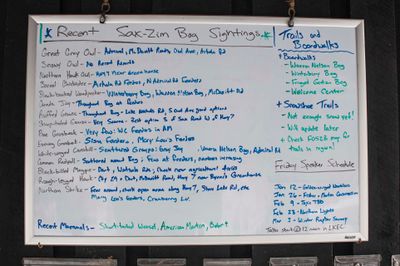 Recent Sax-Zim Bog Sightings
Great Grey Owl - Admiral, McDavitt Rd, Owl Ave, Arkola Rd
Snowy Owl - No Recent Reports
Northern Hawk Owl - Hwy 7 near Greenhouse
Boreal Chickadee - Arkola Rd Feeders, N Admiral Feeders
Black-backed Woodpecker - Winterberry Bog, Warren Nelson Bog, McDavitt Rd
Canada Jay - Throughout Bog at Feeders
Ruffed Grouse - Throughout Bog -
Sharp-tailed Grouse - Very Scarce -
Pine Grosbeak - Very few: WC Feeders in AM
Evening Grosbeak - Feeders, Mary Lou's Feeders
White-winged Crossbill - Scattered Groups: Gray Jay, Warren Nelson Bog, Admiral Rd
Common Redpoll - Scattered around Bog, Few at Feeders, numbers increasing
Black-billed Magpie - Check near agricultural areas
Rough-legged Hawk - Hwy 7 near Byrne's Greenhouse
Northern Shrike - Few around, check open areas along Hwy 7, Stone Lake Rd, etc
Mary Lou's Feeders, Cranberry Ln.
Recent Mammals - Short-tailed Weasel, American Marten, Bobcat
Trails and
Boardwalks
Boardwalks
- Warren Nelson Bog
- Winterberry Bog
- Fringed Gentian Bog
- Welcome Center
Snowshoe Trails
- Not enough snow yet!
- Will update later
- Check FOSZB map for
trails in region!
Friday Speaker Schedule
Jan 12 - Golden-winged Warblers
Jan 26 -
Feb 9 -
Feb 23 - Northern Lights
Mar 8 - Winter Raptor Survey
Talks start @ 12 noon in LKEC